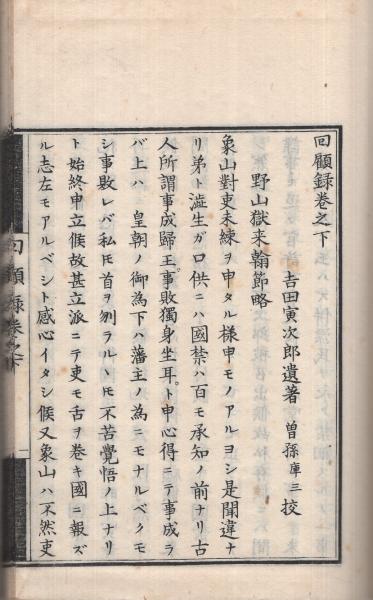 回顧録巻之下
吉田寅次郎遺著 曽孫庫三 挍
野山獄来翰節略
象山對吏未練ヲ申タル様申モノアルヨシ是聞違ナ
リ弟ト澁生ガ口供ニハ國禁ハ百モ承知ノ前ナリ古
人所謂事成歸王事敗獨身坐耳ト申心得ニテ事成ラ
バ上ハ 皇朝ノ御為下ハ藩主ノ為ニモナルベクモ
シ事敗レバ私ヒ首ヲ刎ラルヽヒ不苦覺悟ノ上ナリ
ト始終申立候故甚立派ニテ吏モ舌ヲ巻キ國ニ報ズ
ル志左モアルベシト感心イタシ候又象山ハ不然吏
回顧録巻下
一